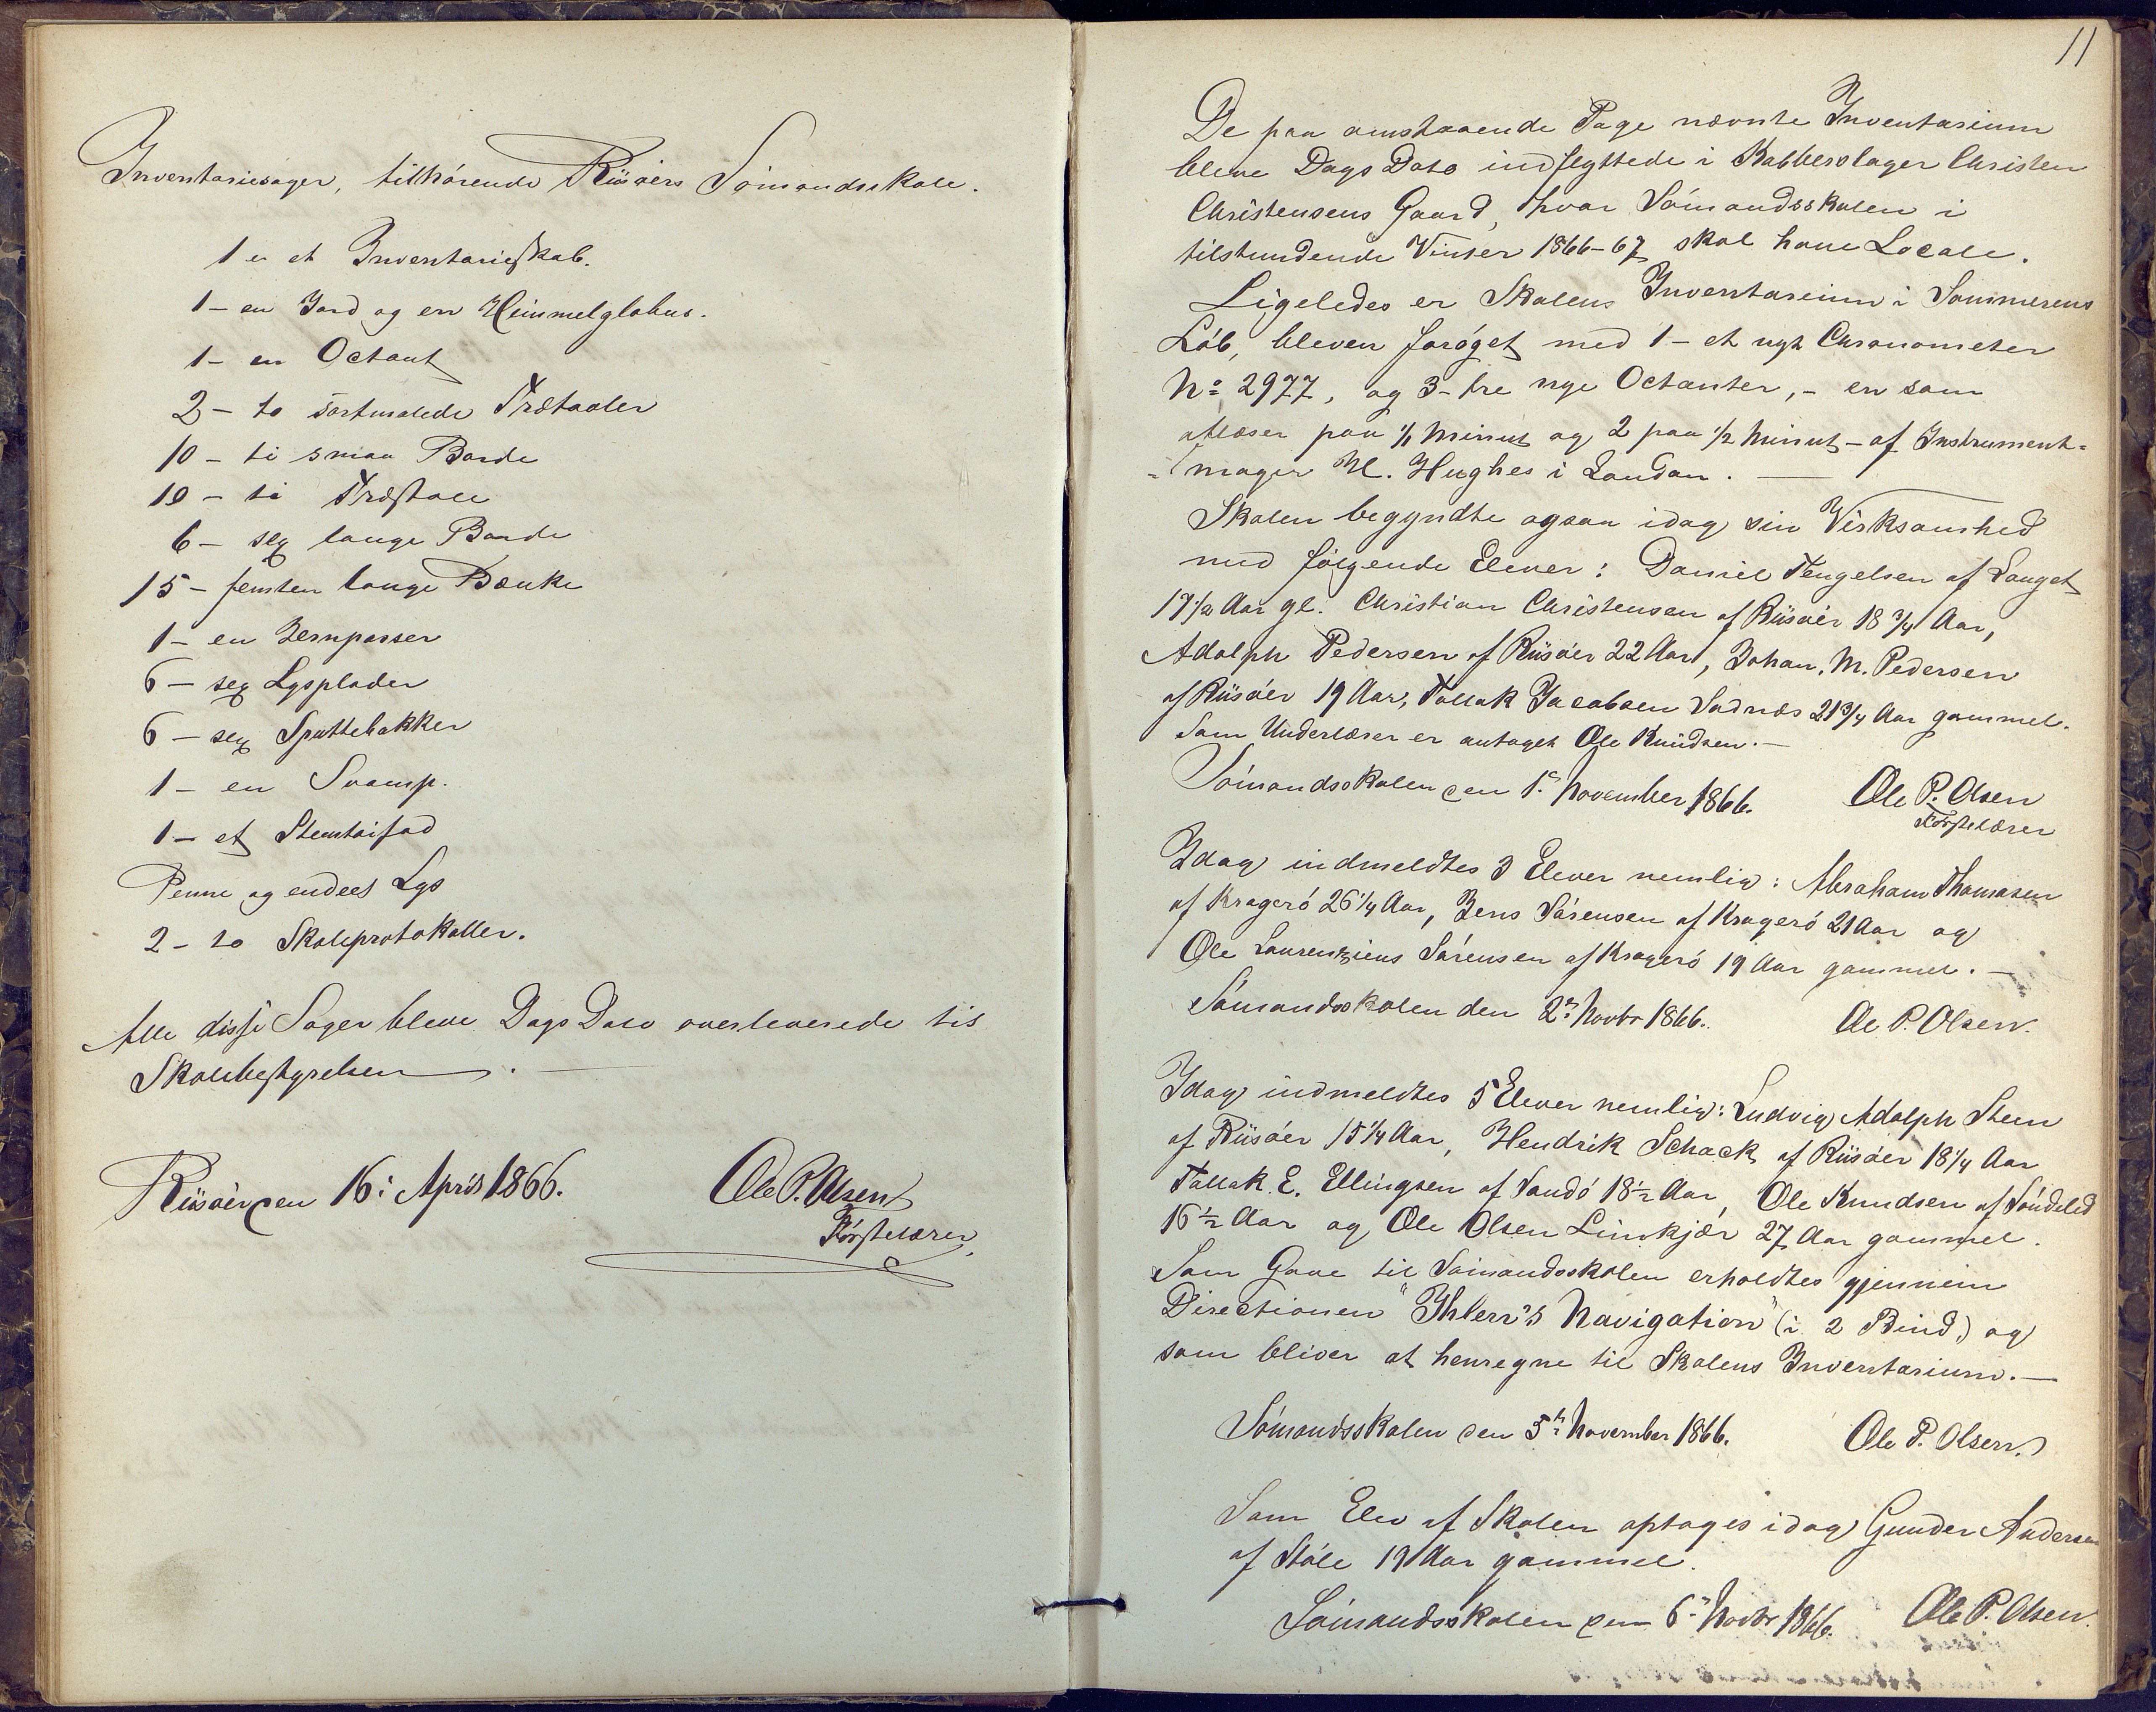 Inventariesager, tilhörende Riisöers Sömandsskole.
1 - et Inventarieskab.
1 - en Jord og en Himmelglobus.
1 - en Octant
2 - to sortmalede Trætavler
10 - ti smaa Borde
10 - ti Træstole
6 - sex lange Borde
15 - femten lange Bænke
1 - en Jernpasser
6 - sex Lyseplader
6 - sex Spyttebakker
1 - en Svamp.
1 - et Stentöifad
Penne og endeel Lys
2 - to Skoleprotokoller.
Alle disse Sager bleve Dags Dato overleverede til
Skolebestyrelsen.
Riisöer den 16: April 1866. Ole P. Olsen
Förstelærer
11
De paa omstaaende Page nævnte Inventarium
bleve Dags Dato indflyttede i Kobberslager Christen
Christensens Gaard, hvor Sömandsskolen i
tilstundende Vinter 1866-67 skal have Locale.
Ligeledes er Skolens Inventarium i Sommerens
Löb, bleven foröget med 1 - et nyt Chronometer
No 2977, og 3 - tre nye Octanter, - en som
aflæser paa 1/1 Minut og 2 paa 1/2 Minut - af Instrument-
-mager H. Hughes i London. —
Skolen begyndte ogsaa idag sin Virksomhed
med fölgende Elever: Daniel Tengelsen af Lauget
17 1/2 Aar gl. Christian Christensen af Riisöer 18 3/4 Aar,
Adolph Pedersen af Riisöer 22 Aar, Johan. M. Pedersen
af Riisöer 19 Aar, Tallak Jacobsen Sadnæs 21 3/4 Aar gammel.
Som Underlærer er antaget Ole Knudsen. —
Sömandsskolen den 1ste November 1866. Ole P. Olsen
Förstelærer
Idag indmeldtes 3 Elever nemlig: Abraham Thomasen
af Kragerö 26 1/4 Aar, Jens Sörensen af Kragerö 21 Aar og
Ole Laurentzius Sörensen af Kragerö 19 Aar gammel. —
Sömandsskolen den 2n Novbr 1866. Ole P. Olsen.
Idag indmeldtes 5 Elever nemlig: Ludvig Adolph Steen
af Riisöer 15 1/4 Aar, Hendrik Schack af Riisöer 18 1/4 Aar
Tallak E. Ellingsen af Sandö 18 1/2 Aar, Ole Knudsen af Söndeled
16 1/2 Aar og Ole Olsen Limkjær 27 Aar gammel.
Som Gave til Sömandsskolen erholdtes gjennem
Directionen "Ihlern's Navigation" (i 2 Bind,) og
som bliver at henregne til Skolens Inventarium. —
Sömandsskolen den 5te November 1866. Ole P. Olsen.
Som Elev af Skolen optages idag Gunder Andersen
af Stöle 19 Aar gammel.
Sömandsskolen den 6te Novbr 1866. Ole P. Olsen.